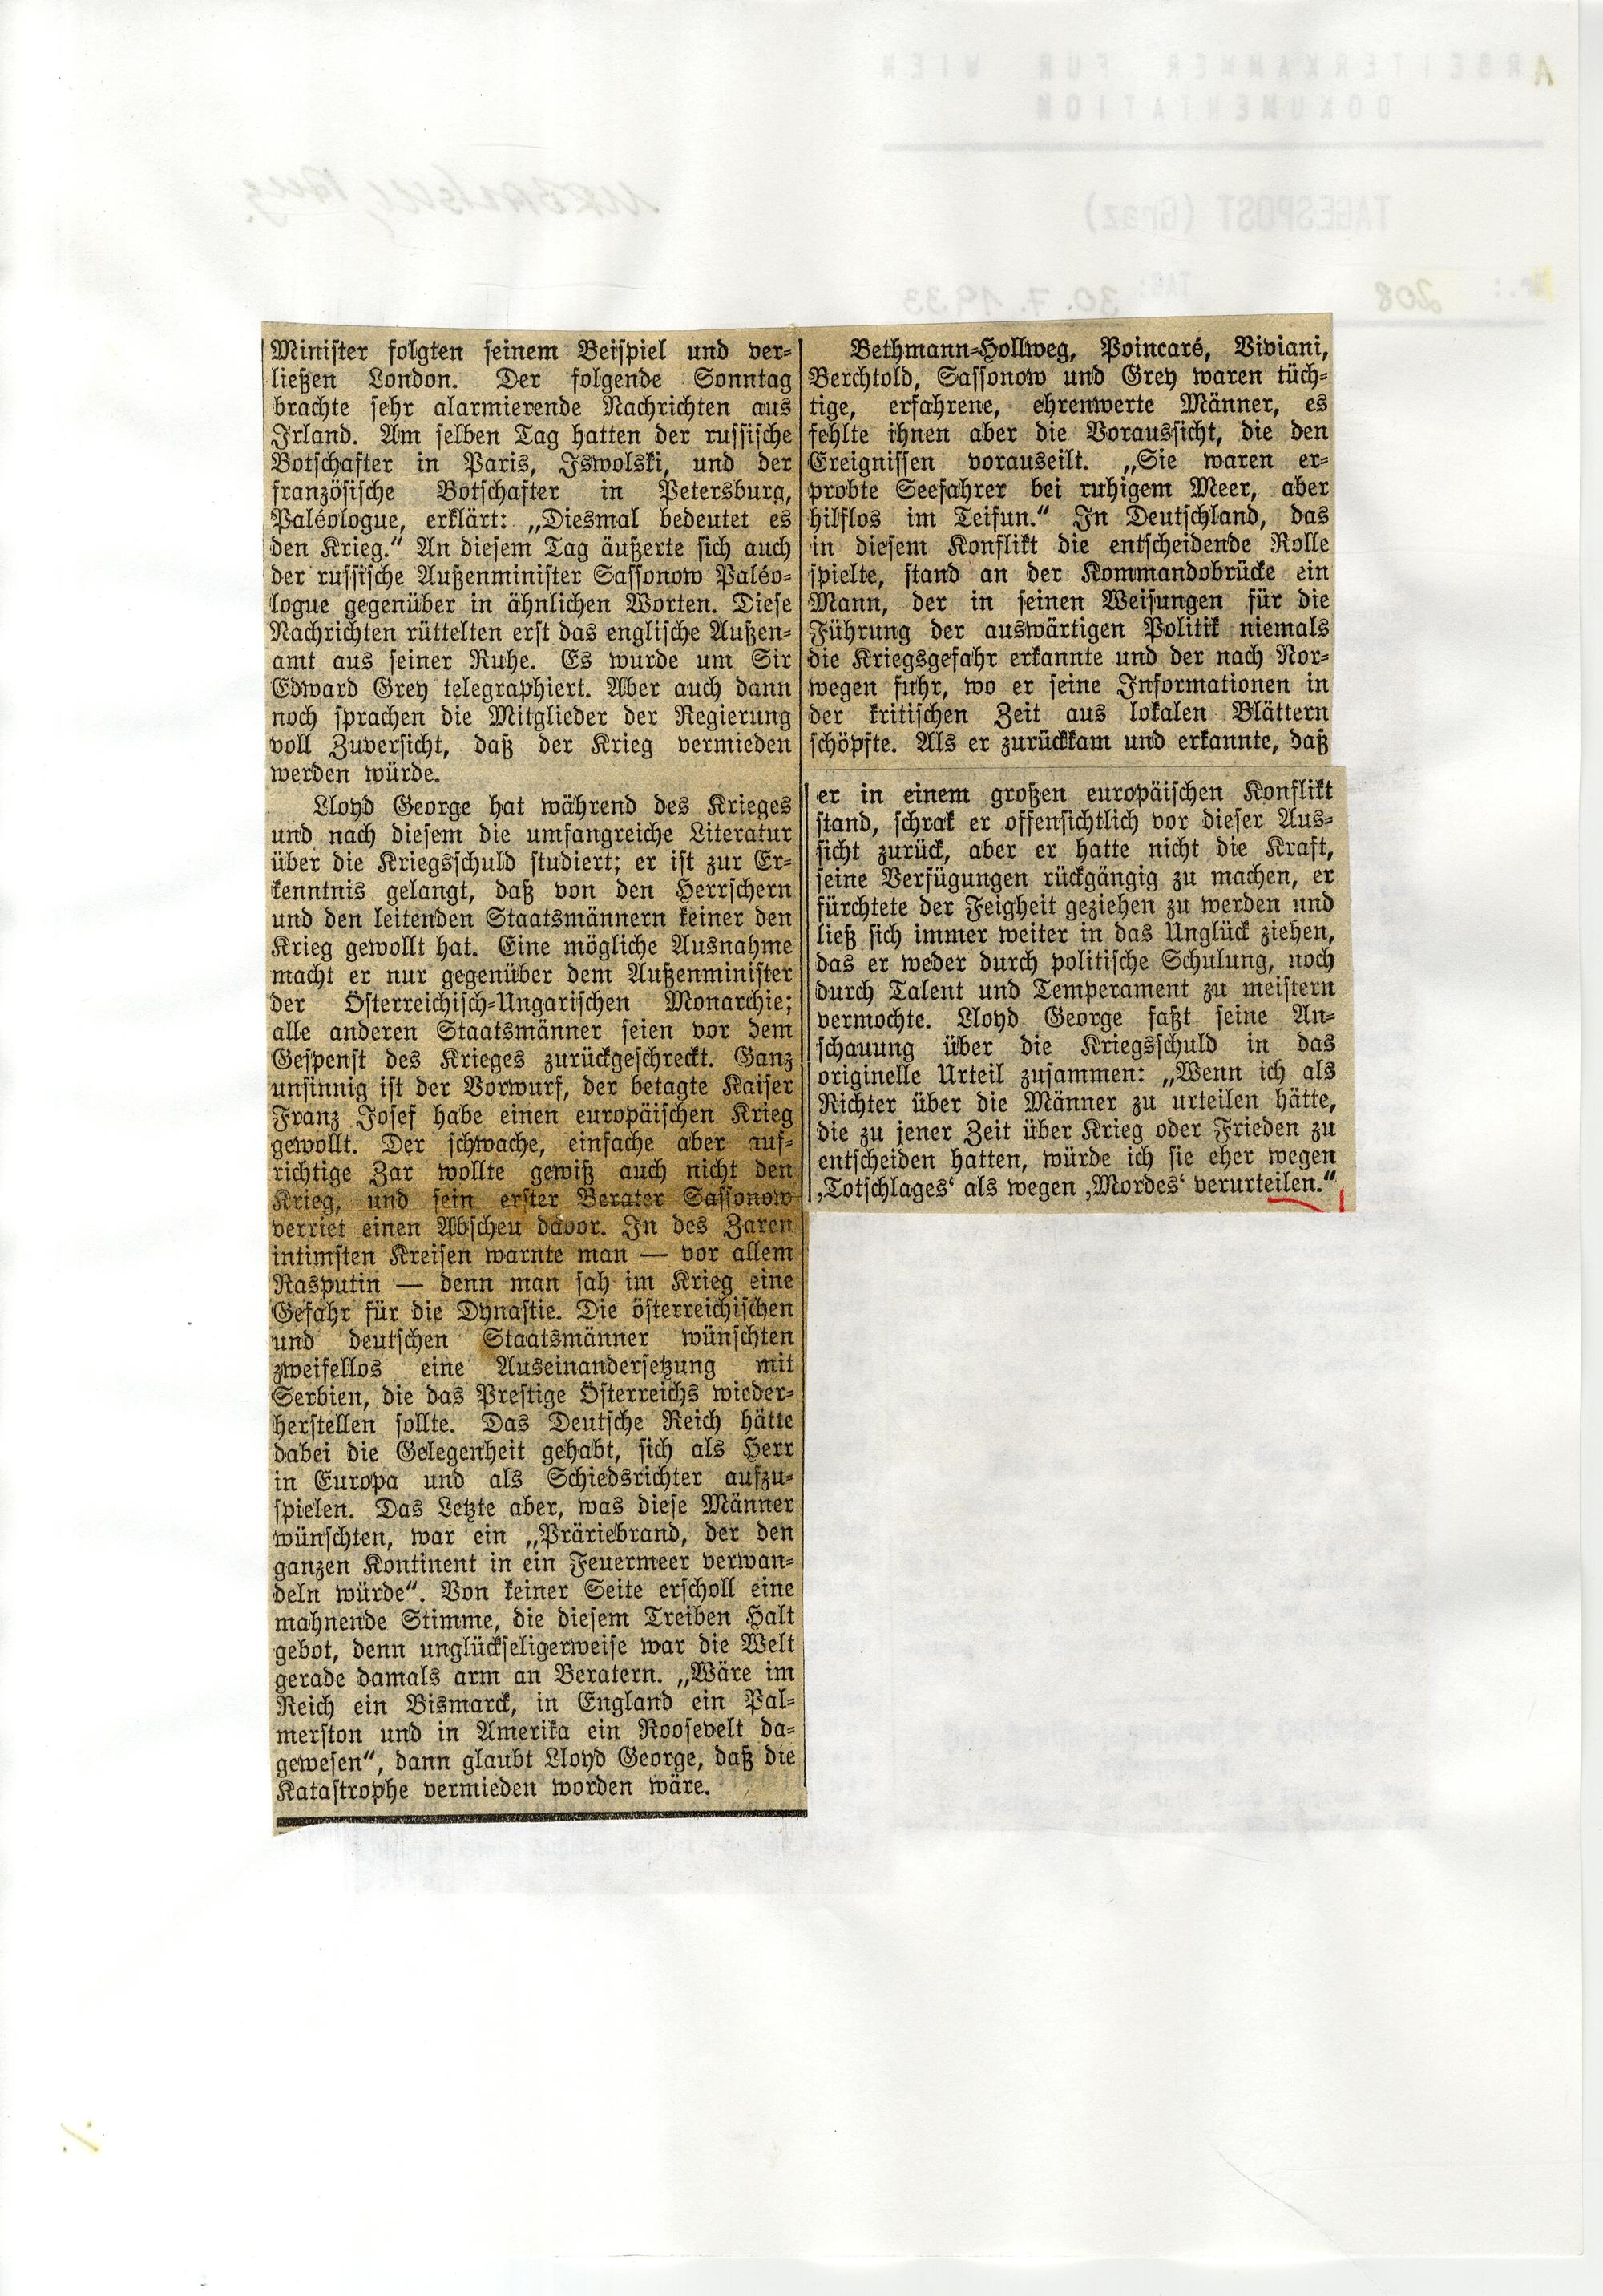 Minister folgten seinem Beispiel und ver-
ließen London. Der folgende Sonntag
brachte sehr alarmierende Nachrichten aus
Irland. Am selben Tag hatten der russische
Botschafter in Paris, Iswolski, und der
französische Botschafter in Petersburg,
Paléologue, erklärt: „Diesmal bedeutet es
den Krieg.“ An diesem Tag äußerte sich auch
der russische Außenminister Sassonow Paléo-
logue gegenüber in ähnlichen Worten. Diese
Nachrichten rüttelten erst das englische Außen-
amt aus seiner Ruhe. Es wurde um Sir
Edward Grey telegraphiert. Aber auch dann
noch sprachen die Mitglieder der Regierung
voll Zuversicht, daß der Krieg vermieden
werden würde.
Lloyd George hat während des Krieges
und nach diesem die umfangreiche Literatur
über die Kriegsschuld studiert; er ist zur Er-
kenntnis gelangt, daß von den Herrschern
und den leitenden Staatsmännern keiner den
Krieg gewollt hat. Eine mögliche Ausnahme
macht er nur gegenüber dem Außenminister
der Österreichisch-Ungarischen Monarchie;
alle anderen Staatsmänner seien vor dem
Gespenst des Krieges zurückgeschreckt. Ganz
unsinnig ist der Vorwurf, der betagte Kaiser
Franz Josef habe einen europäischen Krieg
gewollt. Der schwache, einfache aber auf-
richtige Zar wollte gewiß auch nicht den
Krieg, und sein erster Berater Sassonow
verriet einen Abscheu davor. In des Zaren
intimsten Kreisen warnte man — vor allem
Rasputin — denn man sah im Krieg eine
Gefahr für die Dynastie. Die österreichischen
und deutschen Staatsmänner wünschten
zweifellos eine Auseinandersetzung mit
Serbien, die das Prestige Österreichs wieder-
herstellen sollte. Das Deutsche Reich hätte
dabei die Gelegenheit gehabt, sich als Herr
in Europa und als Schiedsrichter aufzu-
spielen. Das Letzte aber, was diese Männer
wünschten, war ein „Präriebrand, der den
ganzen Kontinent in ein Feuermeer verwan-
deln würde“. Von keiner Seite erscholl eine
mahnende Stimme, die diesem Treiben Halt
gebot, denn unglückseligerweise war die Welt
gerade damals arm an Beratern. „Wäre im
Reich ein Bismarck, in England ein Pal-
merston und in Amerika ein Roosevelt da-
gewesen“, dann glaubt Lloyd George, daß die
Katastrophe vermieden worden wäre.
Bethmann-Hollweg, Poincaré, Viviani,
Berchtold, Sassonow und Grey waren tüch-
tige, erfahrene, ehrenwerte Männer, es
fehlte ihnen aber die Voraussicht, die den
Ereignissen vorauseilt. „Sie waren er-
probte Seefahrer bei ruhigem Meer, aber
hilflos im Teifun.“ In Deutschland, das
in diesem Konflikt die entscheidende Rolle
spielte, stand an der Kommandobrücke ein
Mann, der in seinen Weisungen für die
Führung der auswärtigen Politik niemals
die Kriegsgefahr erkannte und der nach Nor-
wegen fuhr, wo er seine Informationen in
der kritischen Zeit aus lokalen Blättern
schöpfte. Als er zurückkam und erkannte, daß
er in einem großen europäischen Konflikt
stand, schrak er offensichtlich vor dieser Aus-
sicht zurück, aber er hatte nicht die Kraft,
seine Verfügungen rückgängig zu machen, er
fürchtete der Feigheit geziehen zu werden und
ließ sich immer weiter in das Unglück ziehen,
das er weder durch politische Schulung, noch
durch Talent und Temperament zu meistern
vermochte. Lloyd George faßt seine An-
schauung über die Kriegsschuld in das
originelle Urteil zusammen: „Wenn ich als
Richter über die Männer zu urteilen hätte,
die zu jener Zeit über Krieg oder Frieden zu
entscheiden hatten, würde ich sie eher wegen
‚Totschlages‘ als wegen ‚Mordes‘ verurteilen.“
ARBEITERKAMMER FUR WIEN
DOKUMENTATION
TAGESPOST (Graz)
Nr.: 208 TAG: 30.7.1933